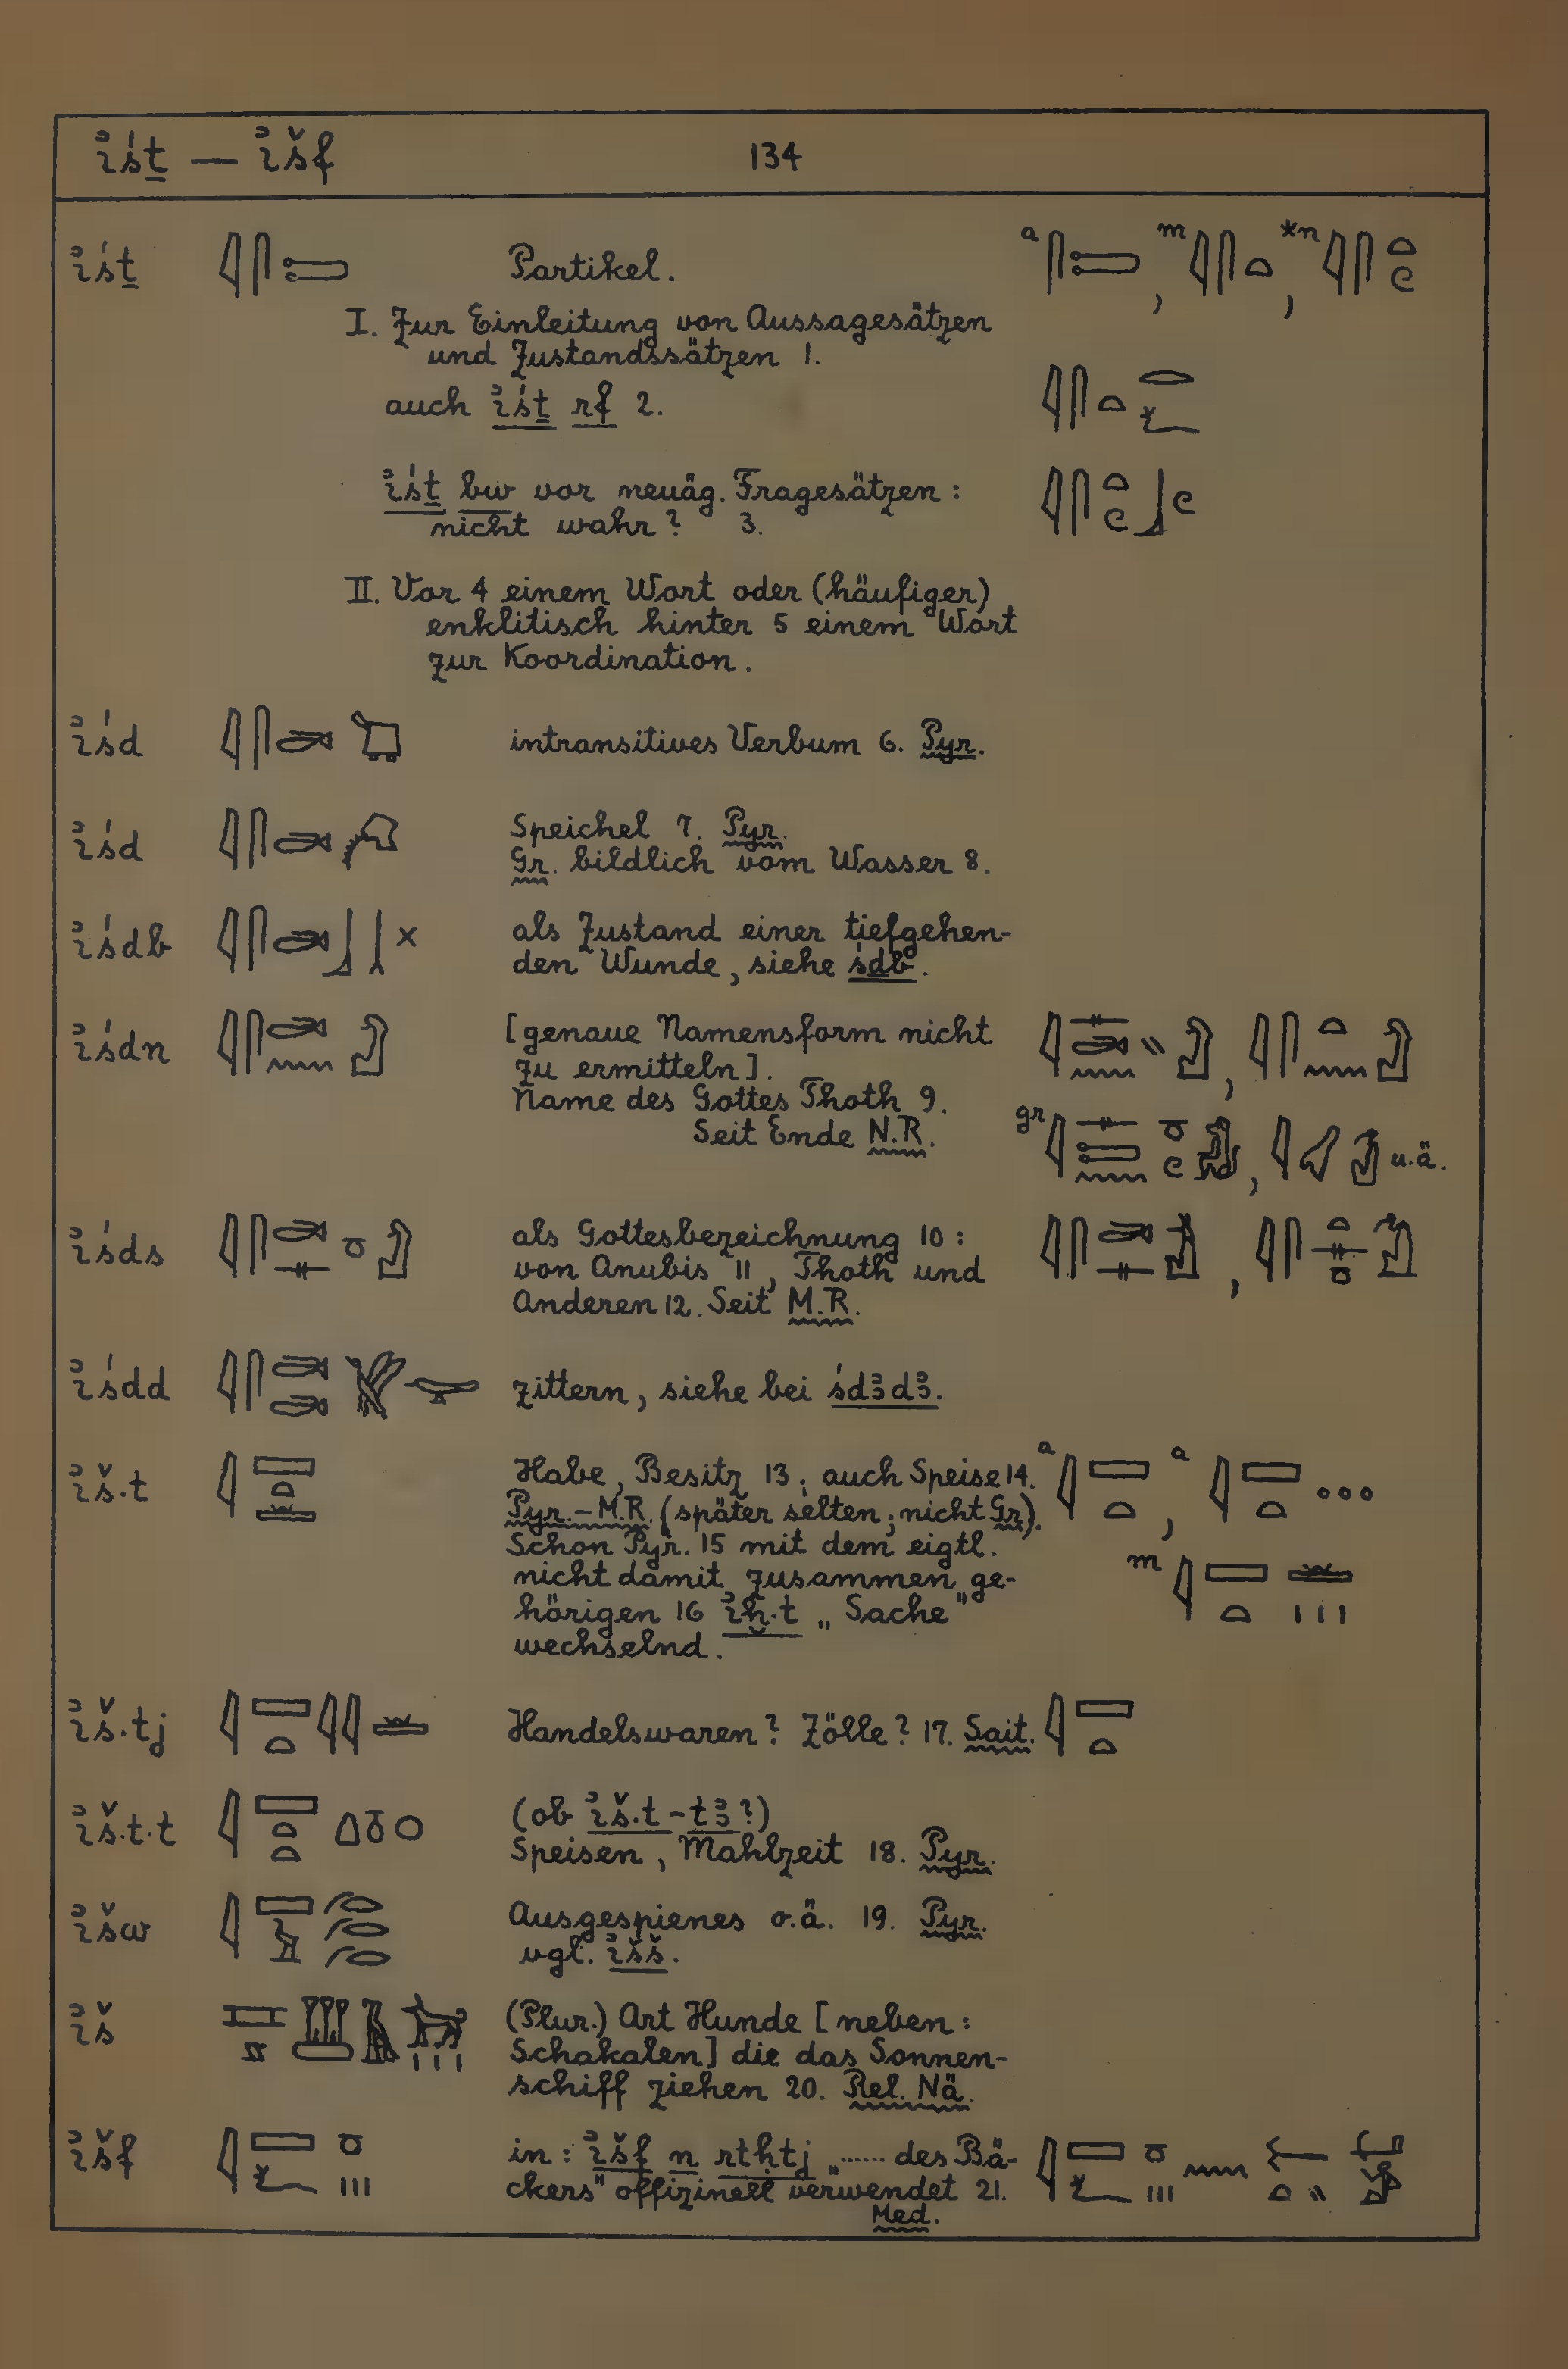 ꞽśṯ — ꞽšf 134
ꞽśṯ 𓇋𓋴𓍿 Partikel. a 𓋴𓍿, m 𓇋𓋴𓏏, *n 𓇋𓋴𓏏𓏲
I. Zur Einleitung von Aussagesätzen
und Zustandssätzen 1.
auch ꞽśṯ rf 2. 𓇋𓋴𓏏𓂋𓆑
ꞽśṯ bw vor neuäg. Fragesätzen: 𓇋𓋴𓏏𓏲𓃀𓏲
nicht wahr? 3.
II. Vor 4 einem Wort oder (häufiger)
enklitisch hinter 5 einem Wort
zur Koordination.
ꞽśd 𓇋𓋴𓂧 intransitives Verbum 6. Pyr.
ꞽśd 𓇋𓋴𓂧 Speichel 7. Pyr.
Gr. bildlich vom Wasser 8.
ꞽśdb 𓇋𓋴𓂧𓃀𓏴 als Zustand einer tiefgehen-
den Wunde, siehe śdb.
ꞽśdn 𓇋𓋴𓂧𓈖𓀭 [genaue Namensform nicht 𓇋𓊃𓂧𓏭𓈖𓀭, 𓇋𓋴𓏏𓈖𓀭
zu ermitteln].
Name des Gottes Thoth 9.
Seit Ende N.R. gr 𓇋𓊃𓍿𓈖𓏌𓏲, u.ä.
ꞽśds 𓇋𓋴𓂧𓊃𓏌𓀭 als Gottesbezeichnung 10: 𓇋𓋴𓂧𓊃, 𓇋𓋴𓏏𓊃𓏌
von Anubis 11, Thoth und
Anderen 12. Seit M.R.
ꞽśdd 𓇋𓋴𓂧𓂧 zittern, siehe bei śdꜣdꜣ.
ꞽš.t 𓇋𓈙𓏏𓏛 Habe, Besitz 13; auch Speise 14. a 𓇋𓈙𓏏, a 𓇋𓈙𓏏
Pyr.–M.R. (später selten; nicht Gr).
Schon Pyr. 15 mit dem eigtl.
nicht damit zusammen ge- m 𓇋𓈙𓏏𓏛𓏥
hörigen 16 ꞽḫ.t „Sache“
wechselnd.
ꞽš.tj 𓇋𓈙𓏏𓇋𓇋𓏛 Handelswaren? Zölle? 17. Sait. 𓇋𓈙𓏏
ꞽš.t.t 𓇋𓈙𓏏𓏏 (ob ꞽš.t-tꜣ?)
Speisen, Mahlzeit 18. Pyr.
ꞽšw 𓇋𓈙𓅱𓂐𓂐𓂐 Ausgespienes o.ä. 19. Pyr.
vgl. ꞽšš.
ꞽš (Plur.) Art Hunde [neben:
Schakalen] die das Sonnen-
schiff ziehen 20. Rel. Nä.
ꞽšf 𓇋𓈙𓆑𓏌𓏥 in: ꞽšf n rtḥtj „...... des Bä- 𓇋𓈙𓆑𓏌𓏥𓈖
ckers“ offizinell verwendet 21.
Med.